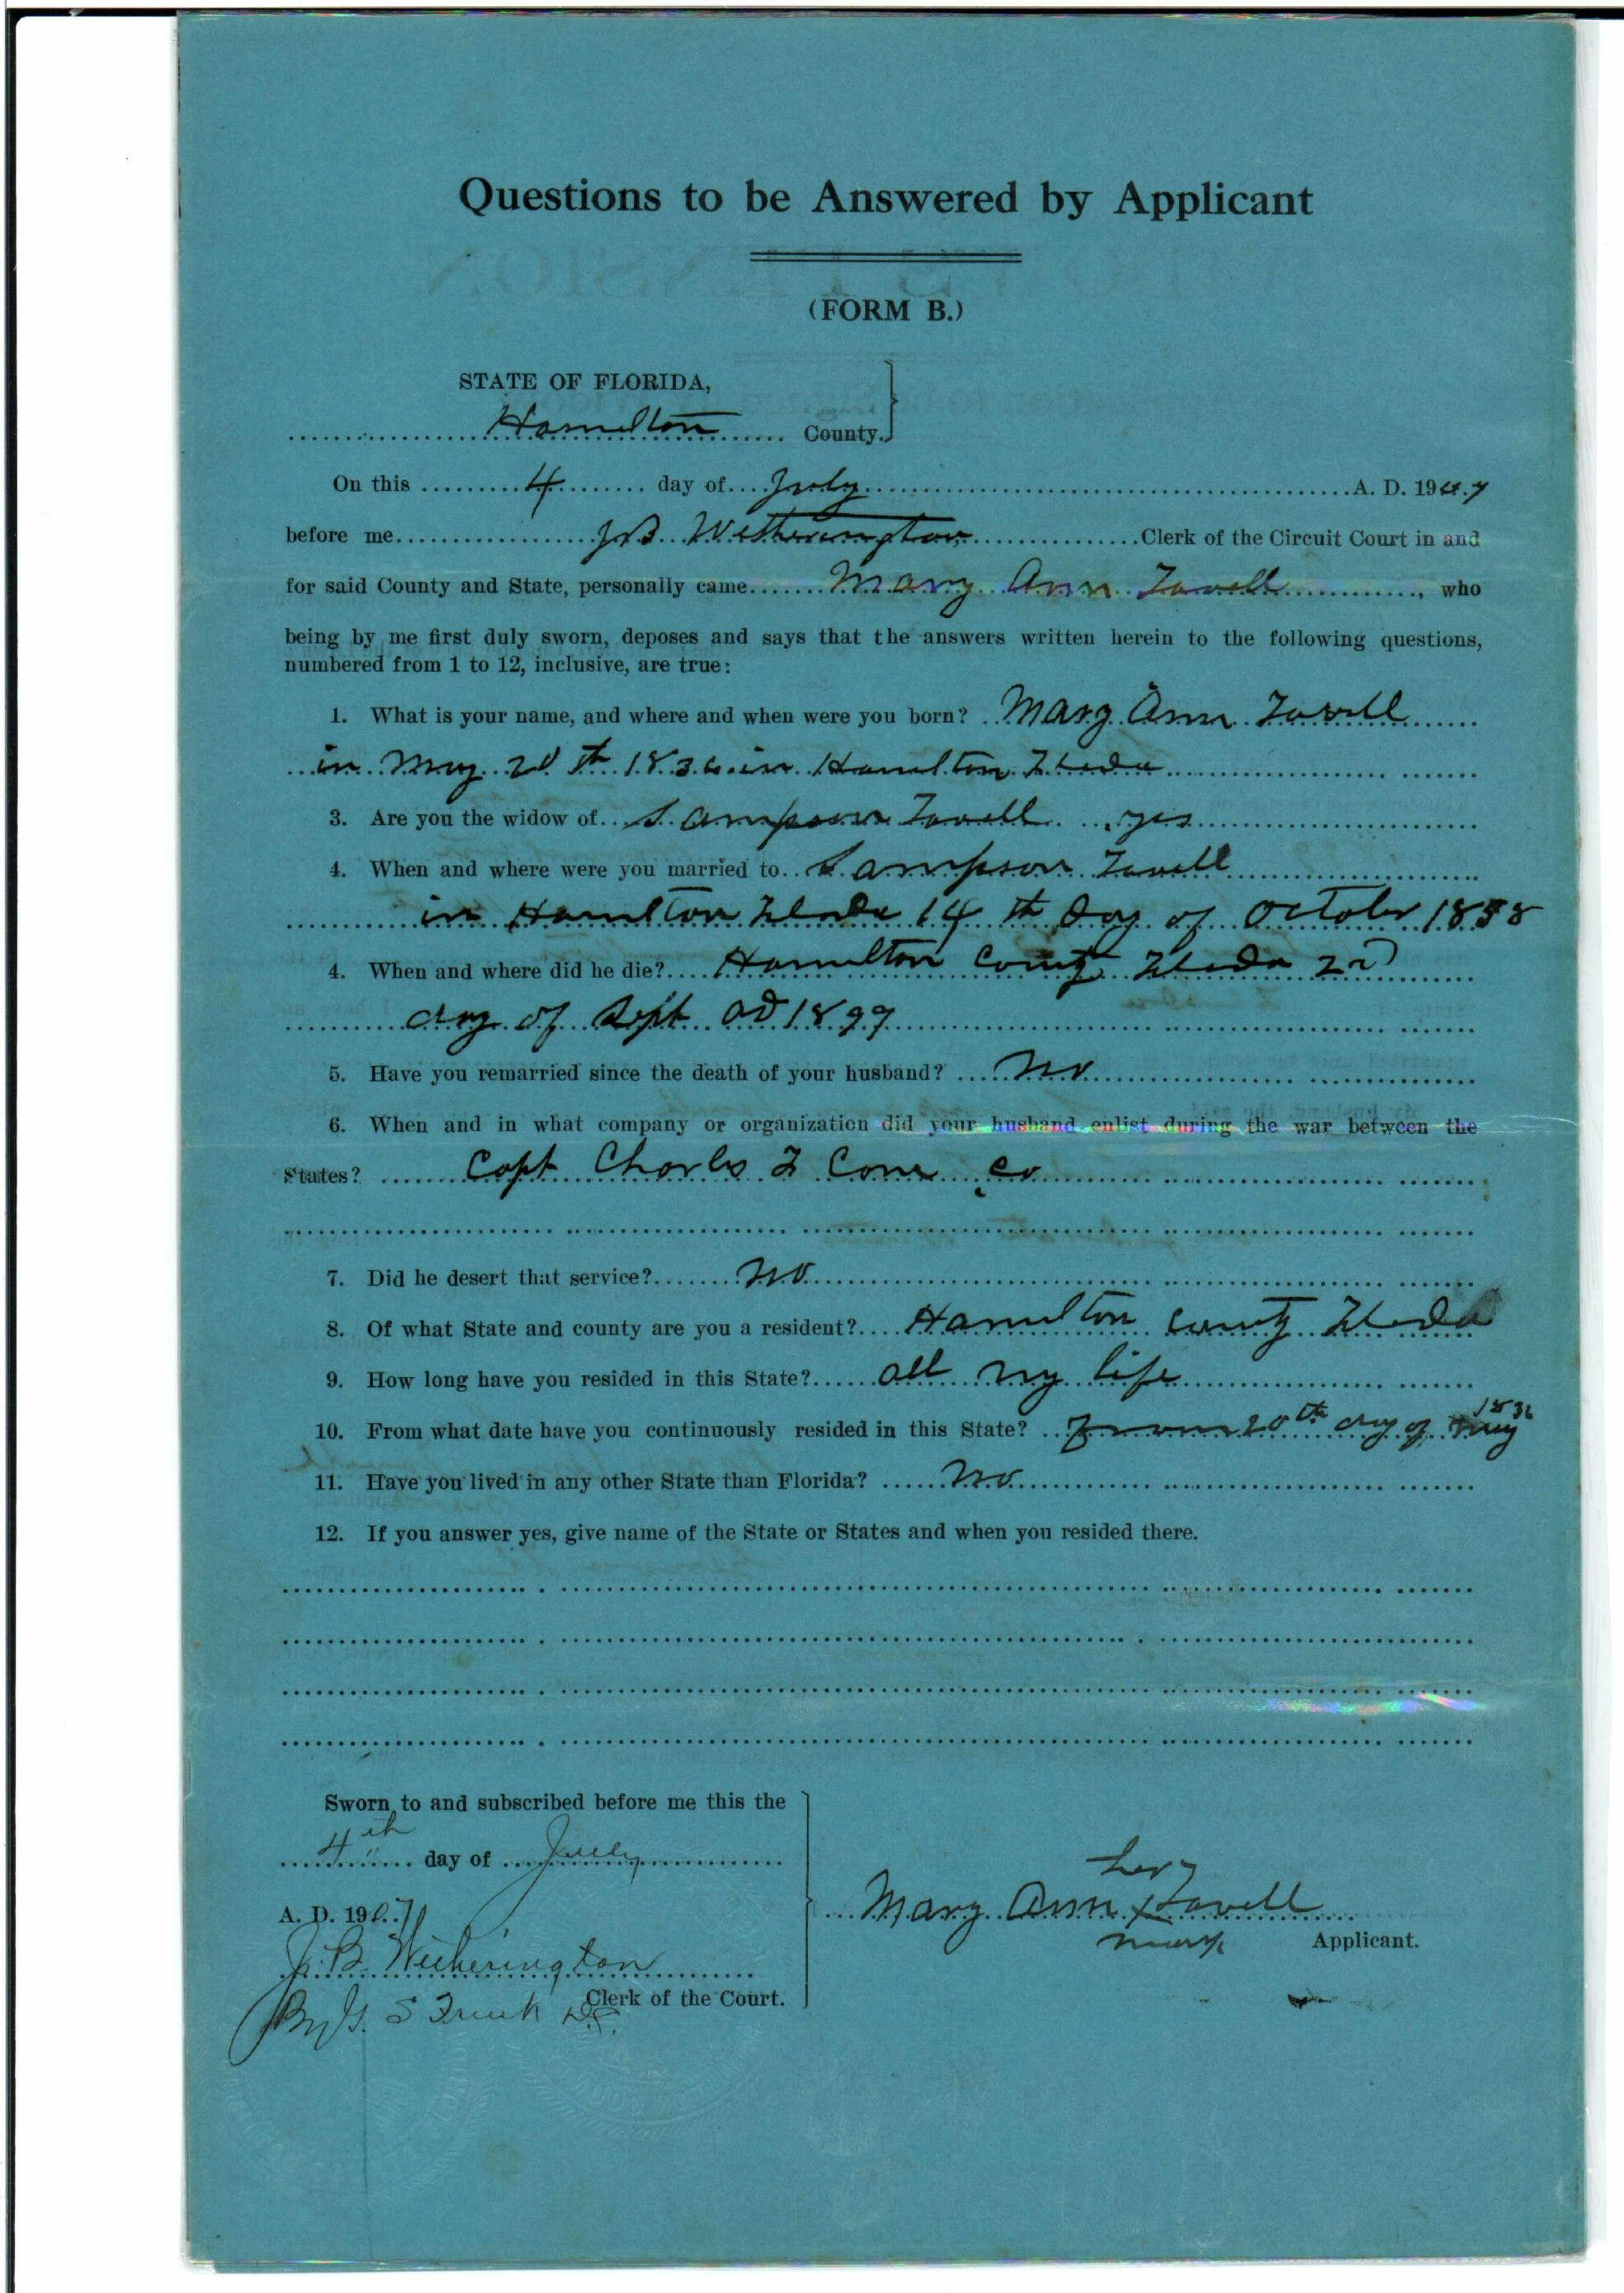 Questions to be Answered by Applicant
(FORM B.)
STATE OF FLORIDA,
Hamilton County.
On this 4 day of July A. D. 1907
before me J B Wetherington Clerk of the Circuit Court in and
for said County and State, personally came Mary Ann , who
being by me first duly sworn, deposes and says that the answers written herein to the following questions,
numbered from 1 to 12, inclusive, are true:
1. What is your name, and where and when were you born? Mary Ann
in May 20th 1836 in Hamilton
3. Are you the widow of Sampson yes
4. When and where were you married to Sampson
in Hamilton 14th Day of October 1858
4. When and where did he die? Hamilton County
day of Sept AD 1899
5. Have you remarried since the death of your husband? No
6. When and in what company or organization did your husband enlist during the war between the
States? Capt Charles F Cone Co
7. Did he desert that service? no
8. Of what State and county are you a resident? Hamilton County
9. How long have you resided in this State? all my life
10. From what date have you continuously resided in this State? From 20th day of May 1836
11. Have you lived in any other State than Florida? No
12. If you answer yes, give name of the State or States and when you resided there.
Sworn to and subscribed before me this the
4th day of July
A. D. 1907
J. B. Wetherington
Clerk of the Court.
By J. S
her
Mary Ann X
mark
Applicant.